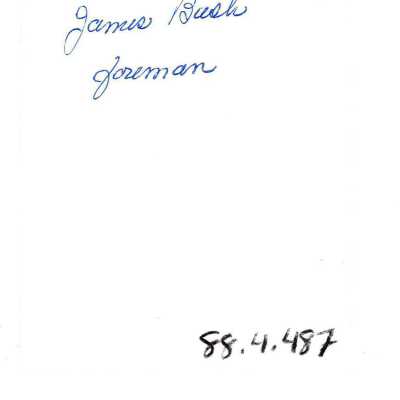 James Bush
foreman
88.4.487